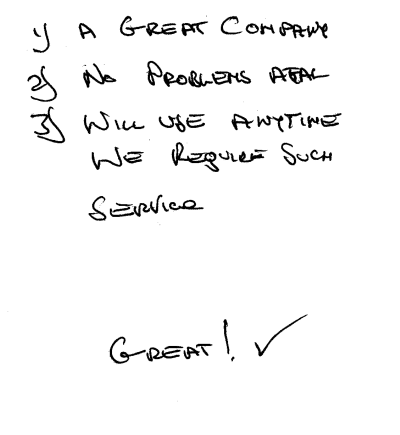 1) A GREAT COMPANY
2) NO PROBLEMS ATAL
3) WILL USE ANYTIME
WE REQUIRE SUCH
SERVICE
GREAT! ✓